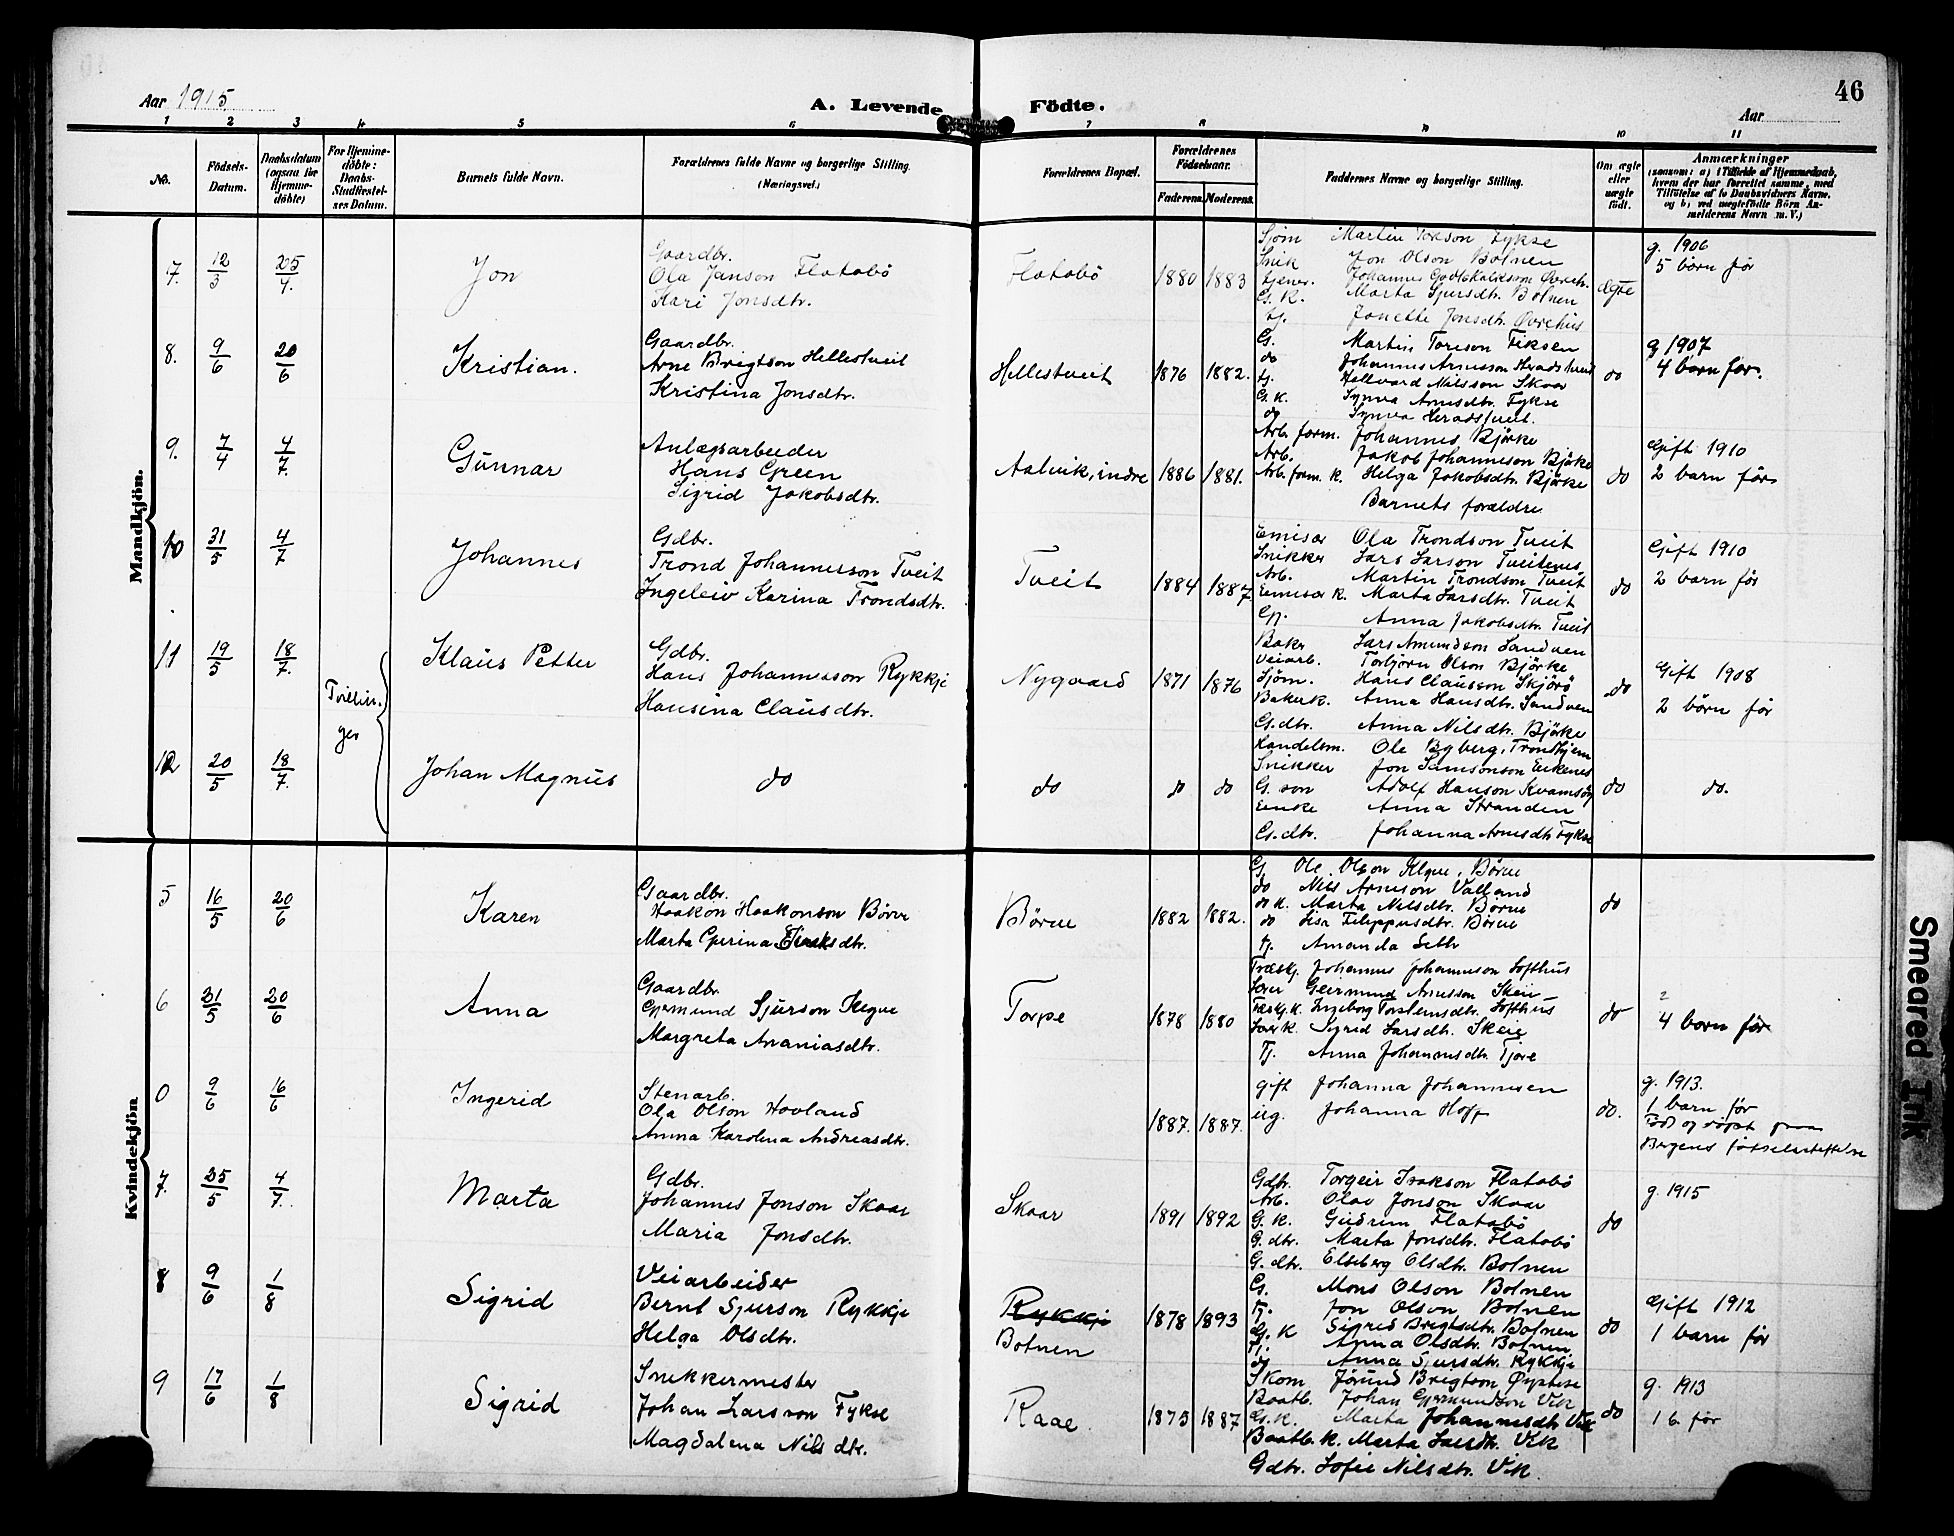 46
Aar 1915
A. Levende Födte.
Aar
1 2 3 4 5 6 7 8 9 10 11
No.
Födsels-Datum.
Daabsdatum (ogsaa for Hjemme-döbte)
For Hjemme-döbte: Daabs-Stadfæstel-ses Datum.
Barnets fulde Navn.
Forældrenes fulde Navne og borgerlige Stilling. (Næringsvei.)
Forældrenes Bopæl.
Forældrenes Födselsaar.
Faderens. Moderens.
Faddernes Navne og borgerlige Stilling.
Om ægte eller uægte födt.
Anmærkninger
(saasom: a) i Tilfælde af Hjemmedaab,
hvem der har forrettet samme, med
Tilföielse af to Daabsvidners Navne,
og b) ved uægtefödte Börn An-
melderens Navn m. V.)
Mandkjön.
7. 12/3 25/4. Jon
Gaardbr.
Ola Janson Flatabö
Kari Jonsdtr.
Flatabö 1880 1883
Sjöm Martin Torson Fykse
Snik Jon Olson Botnen
Tjener. Johannes
G. K. Marta Sjursdtr. Botnen
tj. Janette Jonsdtr. Øvrehus
ægte
g. 1906
5 børn før
8. 9/6 20/6 Kristian.
Gaardbr.
Arne Brigtson Hellestveit
Kristina Jonsdtr.
Hellestveit 1876 1882.
G. Martin Toreson Fiksen
do Johannes Arneson Heradstveit
tj. Hallvard Nilsson Skaar
G. K. Synva Arnesdtr. Fykse
do Synva Heradstveit.
do
g 1907
4 barn før.
9. 7/4 4/7. Gunnar
Anlægsarbeider
Hans Green
Sigrid Jakobsdtr.
Aalvik, indre 1886 1881.
Arb. form. Johannes Bjørke
Arb. Jakob Johanneson Bjørke
Arb. form. K. Helga Jakobsdtr. Bjørke
Barnets forældre
do
Gift 1910
2 barn før
10 31/5 4/7 Johannes
Gdbr.
Trond Johannesson Tveit
Ingeleiv Karina Trondsdtr.
Tveit 1884 1887
Emisær Ola Trondson Tveit
Snikker Lars Larson Tveitenes
Arb. Martin Trondson Tveit
Emisær K. Marta Larsdtr. Tveit
Gp. Anna Jakobsdtr. Tveit
do
Gift 1910
2 barn før
11 19/5 18/7. Tvillin-
ger
Klaus Petter
Gdbr.
Hans Johannesson Rykkje
Hansina Clausdtr.
Nygaard 1871 1876
Baker Lars Amundson Sandven
Veiarb. Torbjørn Olson Bjørke
Sjöm. Hans Clausson Skjørö
Bakerk. Anna Hansdtr. Sandven
G. dtr. Anna Nilsdtr. Bjørke
do
Gift 1908
2 børn før
12 20/5 18/7. Johan Magnus
do
do do do
Handelsm. Ole Byberg, Trondhjem
Snikker Jon Samsonson Eikenes
G. søn Adolf Hanson Kvamsøy
Enke Anna Stranden
G. dtr. Johanna Arnesdtr Fykse
do do.
Kvindekjön
5 16/5 20/6 Karen
Gaardbr.
Haakon Haakonson Børve
Marta Gjerina Eiriksdtr.
Børve 1882 1882.
G. Ole Olson Børve
do Nils Arneson Valland
do K. Marta Nilsdtr. Børve
do Lisa Filippusdtr. Børve
tj. Amanda
do
6 31/5 20/6 Anna
Gaardbr.
Gjermund Sjurson
Margreta Ananiasdtr.
Torpe 1878 1880
Johannes Johanneson Lofthus
Geirmund Arnesson Skeie
Ingeborg Torsteinsdtr. Lofthus
Sigrid Larsdtr. Skeie
Tj. Anna Johannesdtr. Tjore
do
4 born før
0 9/6 16/6 Ingerid
Stenarb.
Ola Olson Hovland
Anna Karolina Andreasdtr.
1887. 1887.
gift Johanna Johannesen
ug. Johanna Hoff
do.
g. 1913.
1 barn før
Født og døpt paa
Bergens fødselsstiftelse
7. 25/5 4/7. Marta
Gdbr.
Johannes Jonson Skaar
Maria Jonsdtr.
Skaar 1891 1892
Gdbr. Torgeir Isakson Flatabö
Arb. Olav Jonson Skaar
G. K. Gudrun Flatabö
G. dtr. Marta Jonsdtr. Flatabö
G. dtr. Elseberg Olsdtr. Botnen
do
g. 1915
8 9/6 1/8 Sigrid
Veiarbeider
Bernt Sjurson Rykkje
Helga Olsdtr.
Rykkje
Botnen
1878 1893
G. Mons Olson Botnen
tj. Jon Olson Botnen
G. K Sigrid Brigtsdtr. Botnen
tj. Anna Olsdtr. Botnen
do Anna Sjursdtr. Rykkje
do
Gift 1912
1 barn før
9 17/6 1/8 Sigrid
Snekkermester
Johan Larsson Fykse
Magdalena Nilsdtr.
Raae 1875 1887
Skom Jørund Brigtson Øystese
Baatb. Johan Gjermundson Vik
G. K. Marta Johannesdtr Vik
Baatb. K. Marta Larsdtr. Vik
Gdtr. Sofie Nilsdtr. Vik.
do
g. 1913
1 b. før
Smeared Ink